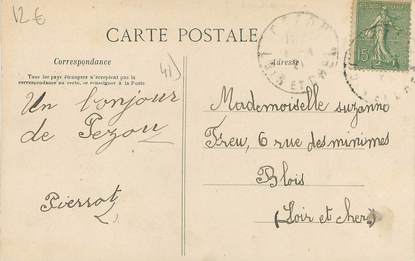 12 €
CARTE POSTALE
Correspondance
41)
Adresse
Tous les pays étrangers n'acceptent pas la
correspondance au verso, se renseigner à la Poste
Un bonjour
de Pezou
Pierrot
Mademoiselle suzanne
Freu, 6 rue des minimes
Blois
(Loir et cher)
15